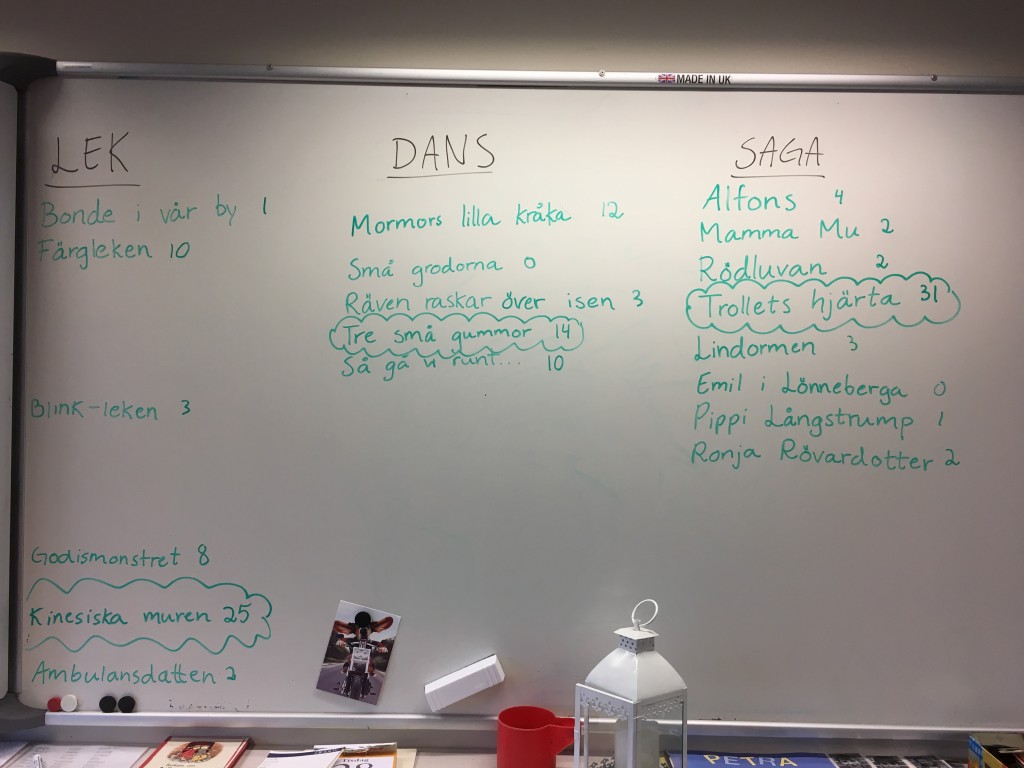 MADE IN UK
LEK
Bonde i vår by 1
Färgleken 10
Blink-leken 3
Godismonstret 8
Kinesiska muren 25
Ambulansdatten 2
DANS
Mormors lilla kråka 12
Små grodorna 0
Räven raskar över isen 3
Tre små gummor 14
Så gå vi runt... 10
SAGA
Alfons 4
Mamma Mu 2
Rödluvan 2
Trollets hjärta 31
Lindormen 3
Emil i Lönneberga 0
Pippi Långstrump 1
Ronja Rövardotter 2
Tisdag
28
PETRA